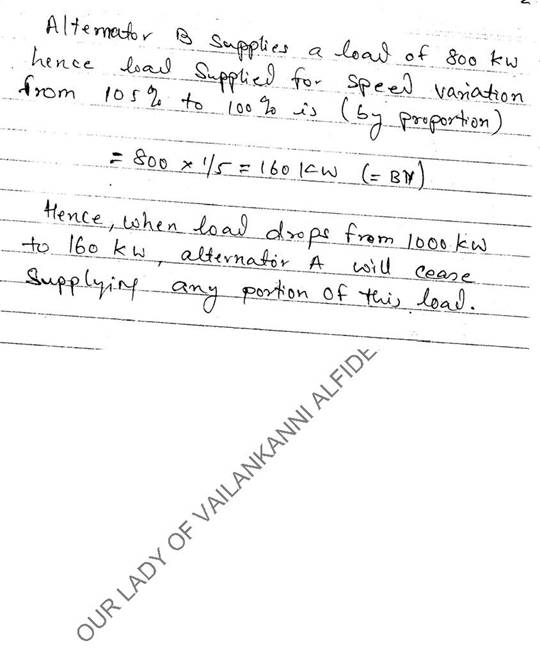 Alternator B supplies a load of 800 kw
hence load supplied for speed variation
from 105% to 100% is (by proportion)
= 800 × 1/5 = 160 kw (= BY)
Hence, when load drops from 1000 kw
to 160 kw, alternator A will cease
supplying any portion of this load.
OUR LADY OF VAILANKANNI ALFIDE